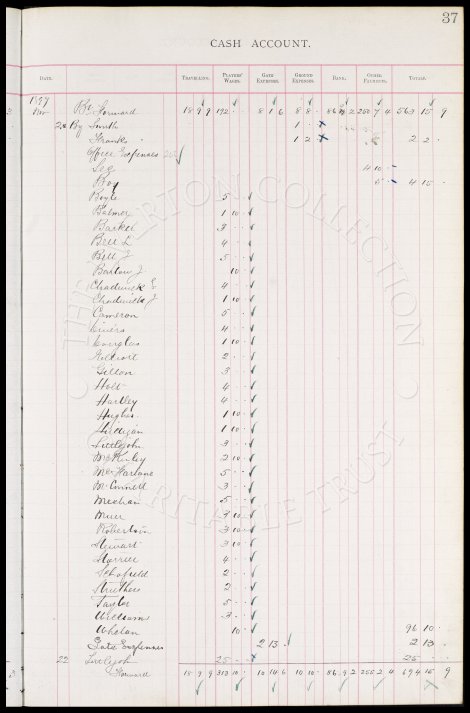 37
CASH ACCOUNT.
DATE. TRAVELLING. PLAYERS' WAGES. GATE EXPENSES. GROUND EXPENSES. BANK. OTHER PAYMENTS. TOTALS.
1897
Nov Bt Forward 18 9 9 192 - - 8 1 6 8 8 2 4 563 15 9
20 By Smith 1 - -
Franks 1 2 2 2 -
Office Expenses
Lee 4 10 -
Boy 5 - 4 15 -
Boyle 5 - -
Balmer 1 10 -
Barker 3 - -
Bell L 4 - -
Bell J 5 - -
Barlow J 10 -
Chadwick E 4 - -
Chadwick J 1 10 -
Cameron 5 - -
4 - -
Douglas 1 10 -
2 - -
3 - -
Holt 4 - -
Hartley 4 - -
Hughes 1 10 -
1 10 -
Littlejohn 3 - -
McKinley 2 10 -
McFarlane 5 - -
McConnell 3 - -
Meehan 5 - -
Muir 3 10 -
Robertson 3 10 -
Stewart 3 10 -
Storrier 4 - -
Schofield 2 - -
Struthers 2 - -
Taylor 5 - -
Williams 3 - -
Whelan 10 - 96 10 -
Gate Expenses 2 13 - 2 13 -
22 Littlejohn 25 - - 25 - -
Forward 18 9 9 313 10 - 10 14 6 10 10 - 86 9 2 255 2 4 694 15 9
THE EVERTON COLLECTION CHARITABLE TRUST